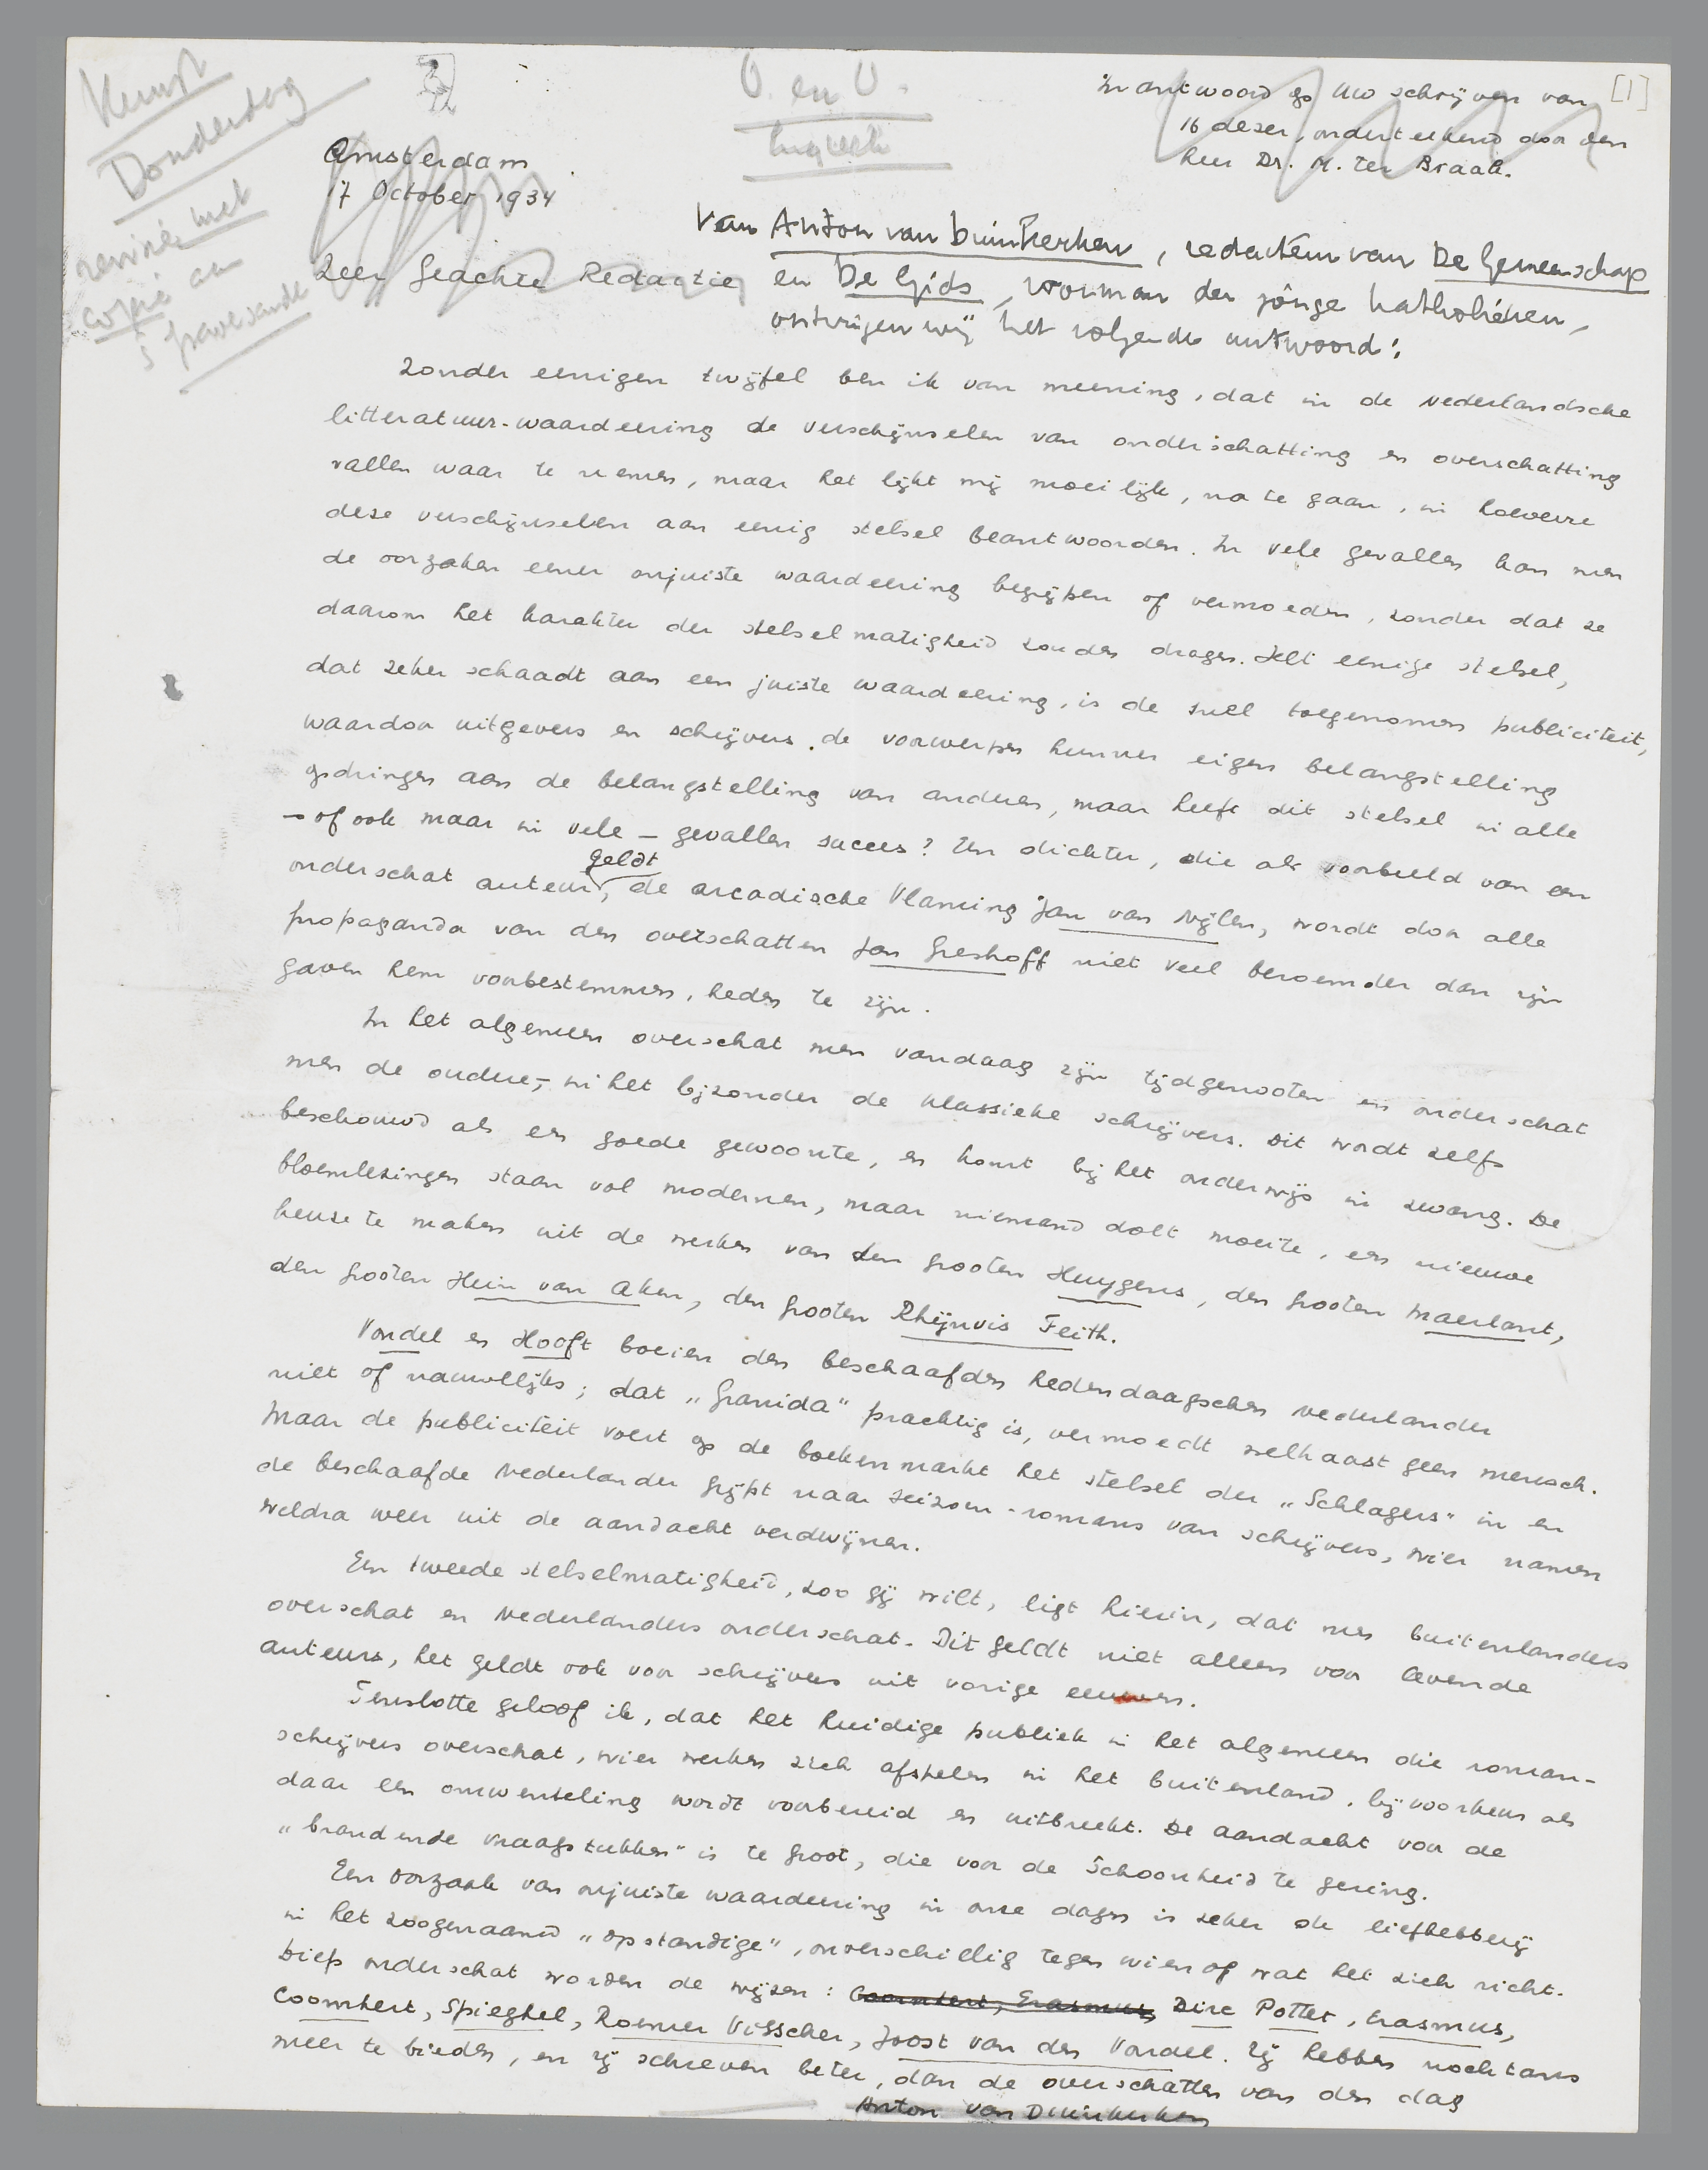 Kunst
Donderdag
revisie, met
copie aan
's Gravesande
O. en O.
Enquête
[1]
In antwoord op Uw schrijven van
16 dezer, onderteekend door den
heer Dr. M. ter Braak.
Amsterdam
17 October 1934
Zeer Geachte Redactie
Van Anton van Duinkerken, redacteur van De Gemeenschap
en De Gids, voorman der jonge katholieken,
ontvingen wij het volgende antwoord:
Zonder eenigen twijfel ben ik van meening, dat in de Nederlandsche
litteratuur-waardeering de verschijnselen van onderschatting en overschatting
vallen waar te nemen, maar het lijkt mij moeilijk, na te gaan, in hoeverre
deze verschijnselen aan eenig stelsel beantwoorden. In vele gevallen kan men
de oorzaken eener onjuiste waardeering begrijpen of vermoeden, zonder dat ze
daarom het karakter der stelselmatigheid zouden dragen. Het eenige stelsel,
dat zeker schaadt aan een juiste waardeering, is de snel toegenomen publiciteit,
waardoor uitgevers en schrijvers de voorwerpen hunner eigen belangstelling
opdringen aan de belangstelling van anderen, maar heeft dit stelsel in alle
– of ook maar in vele – gevallen succes? Een dichter, die als voorbeeld van een
onderschat auteur geldt, de arcadische Vlaming Jan van Nijlen, wordt door alle
propaganda van den overschatten Jan Greshoff niet veel beroemder dan zijn
gaven hem voorbestemmen, heden te zijn.
In het algemeen overschat men vandaag zijn tijdgenooten en onderschat
men de oudere, in het bijzonder de klassieke schrijvers. Dit wordt zelfs
beschouwd als een goede gewoonte, en komt bij het onderwijs in zwang. De
bloemlezingen staan vol modernen, maar niemand doet moeite, een nieuwe
keuze te maken uit de werken van den grooten Huygens, den grooten Maerlant,
den grooten Hein van Aken, den grooten Rhijnvis Feith.
Vondel en Hooft boeien den beschaafden hedendaagschen Nederlander
niet of nauwelijks; dat „Granida" prachtig is, vermoedt welhaast geen mensch.
Maar de publiciteit voert op de boekenmarkt het stelsel der „Schlagers" in en
de beschaafde Nederlander grijpt naar seizoen-romans van schrijvers, wier namen
weldra weer uit de aandacht verdwijnen.
Een tweede stelselmatigheid, zoo gij wilt, ligt hierin, dat men buitenlanders
overschat en Nederlanders onderschat. Dit geldt niet alleen voor levende
auteurs, het geldt ook voor schrijvers uit vorige eeuwen.
Tenslotte geloof ik, dat het huidige publiek in het algemeen die roman-
schrijvers overschat, wier werken zich afspelen in het buitenland, bij voorkeur als
daar een omwenteling wordt voorbereid en uitbreekt. De aandacht voor de
„brandende vraagstukken" is te groot, die voor de Schoonheid te gering.
Een oorzaak van onjuiste waardeering in onze dagen is zeker de liefhebberij
in het zoogenaamd „opstandige", onverschillig tegen wien of wat het zich richt.
Diep onderschat worden de wijzen: Coornhert, Erasmus, Dirc Potter, Erasmus,
Coornhert, Spieghel, Roemer Visscher, Joost van den Vondel. Zij hebben nochtans
meer te bieden, en zij schreven beter, dan de overschatten van den dag
Anton van Duinkerken